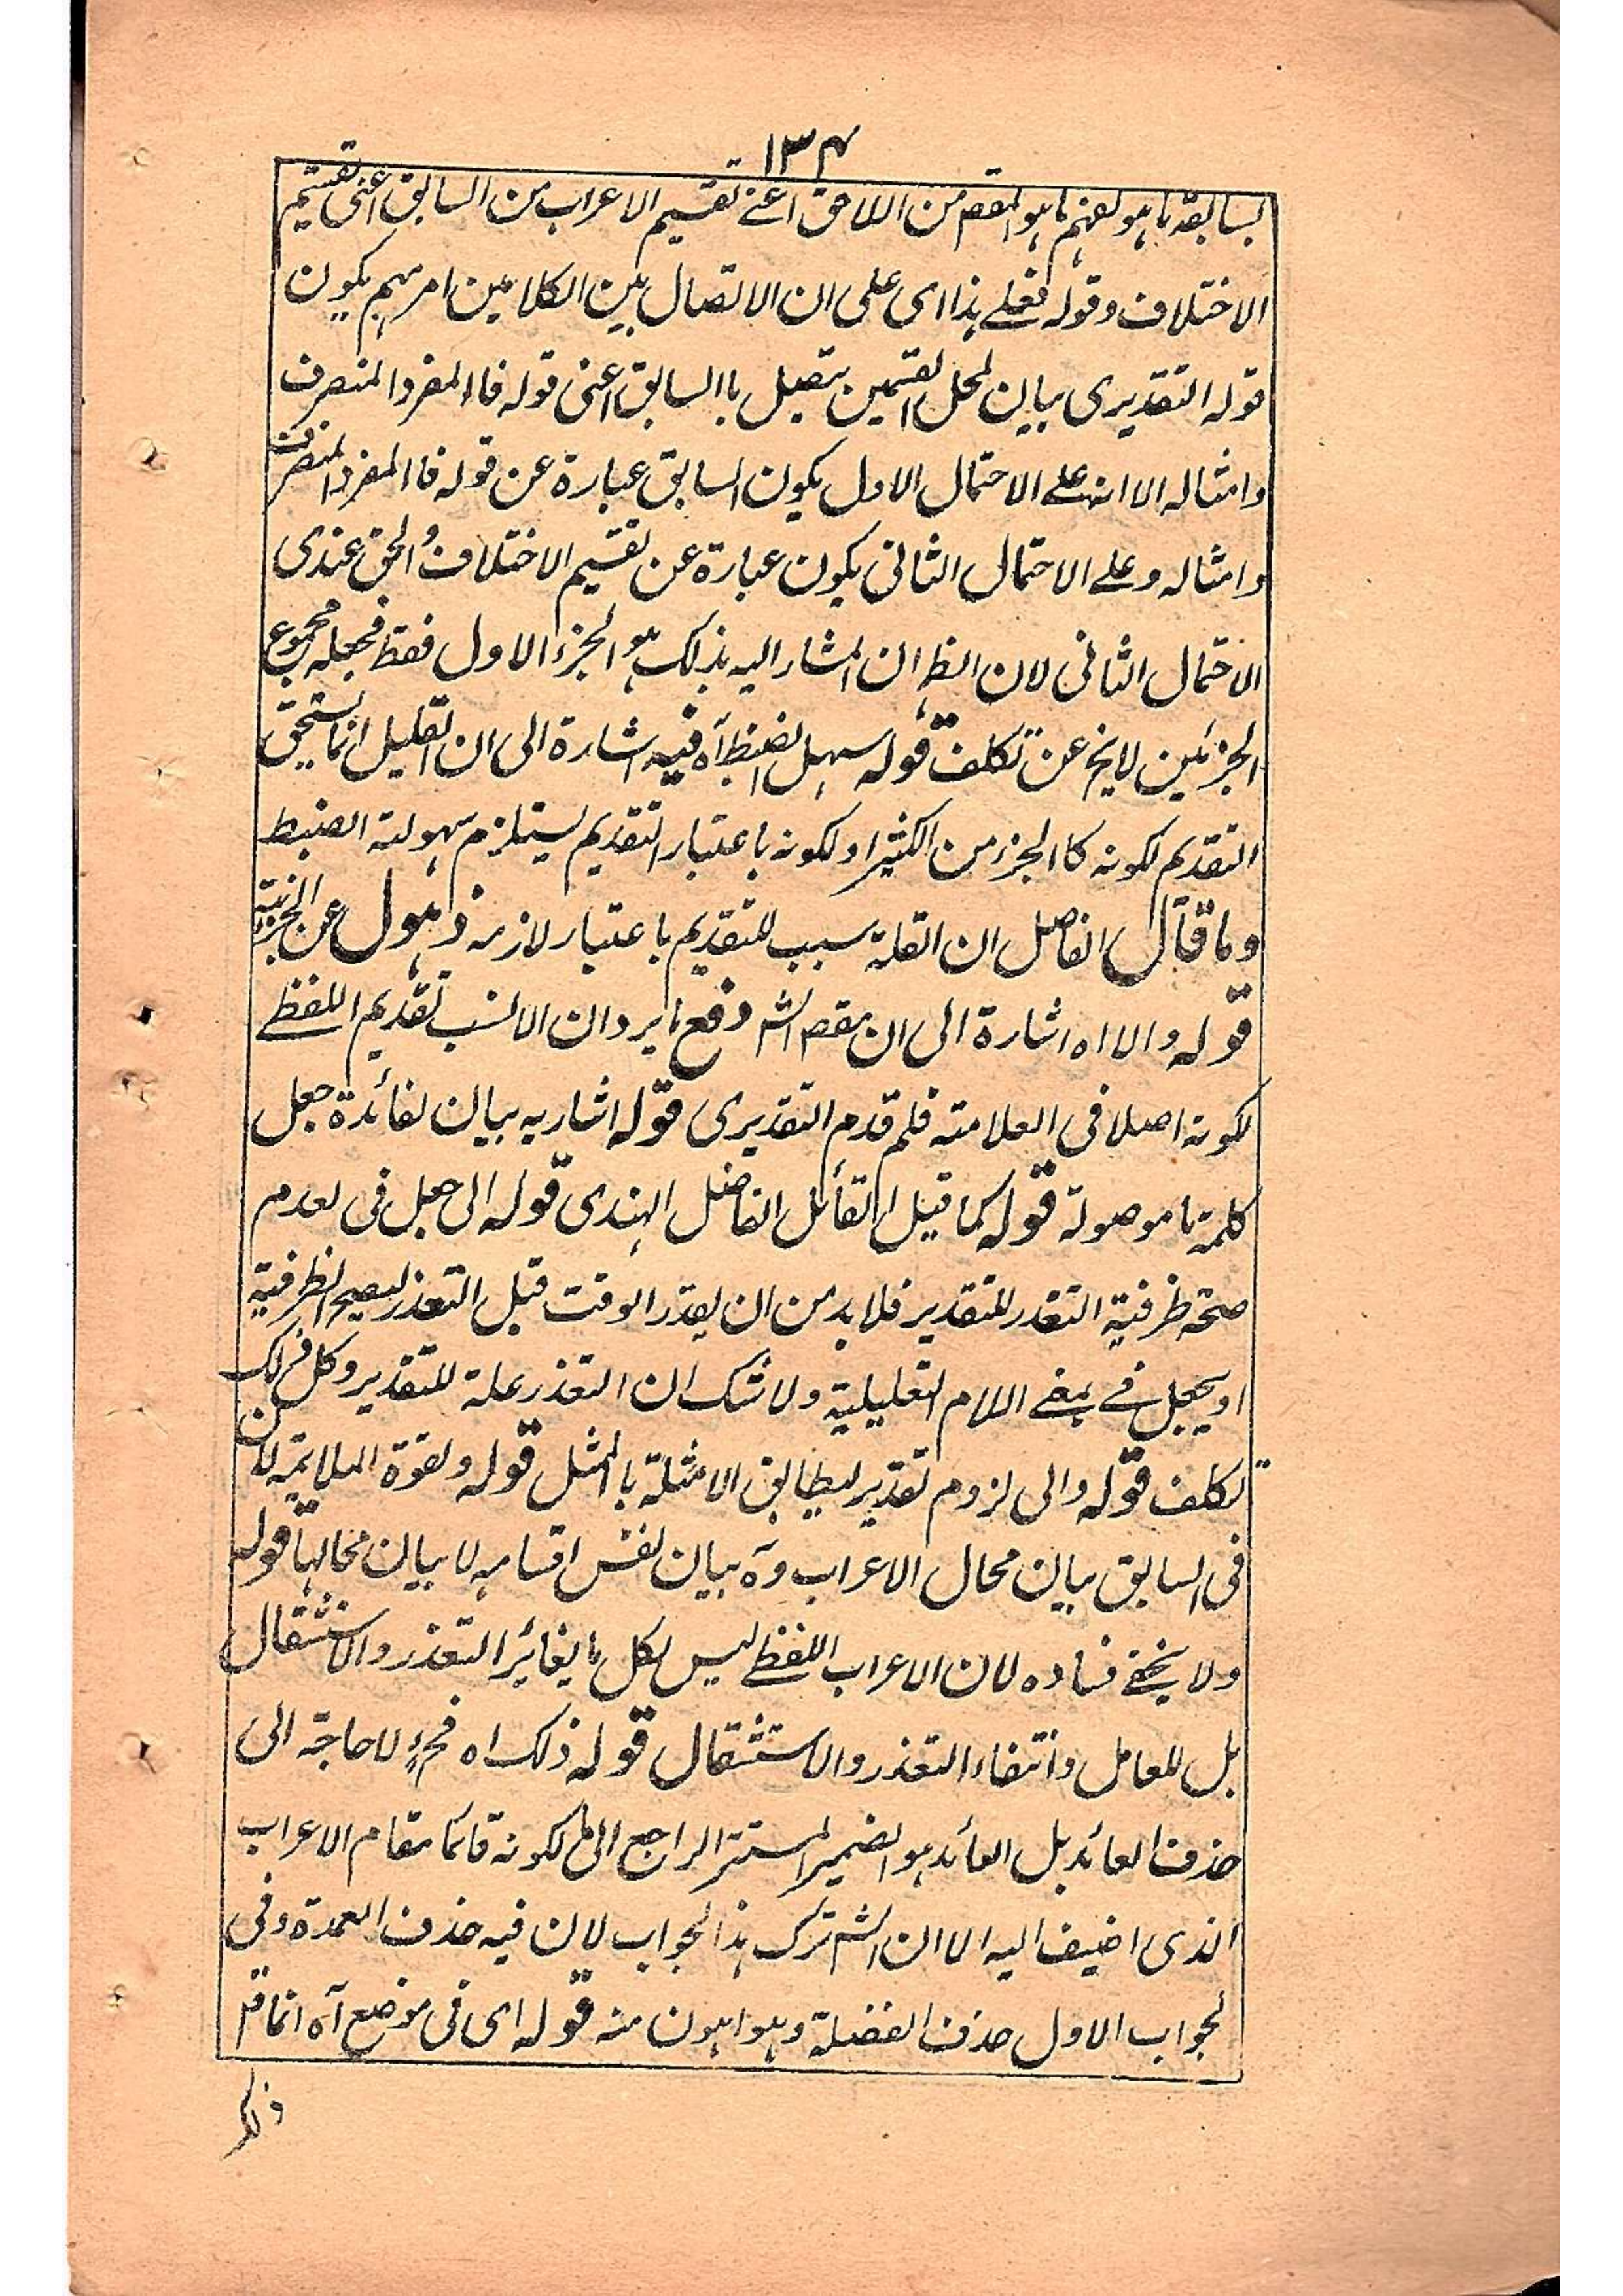 ۱۳۴
بسابقه ما هو لفهم ما هو المقصم من اللاحق اعنے تقسیم الاعراب من السابق اعنی تقسیم
الاختلاف وقوله فعلے هذا ای علی ان الاتصال بین الکلامین امر مبهم یکون
قوله التقدیری بیان لمحل القسمین یتصل با السابق اعنی قوله فا المفرد المنصرف
وامثاله الا انه علے الاحتمال الاول یکون السابق عبارة عن قوله فا المفرد المنصرف
وامثاله وعلے الاحتمال الثانی یکون عبارة عن تقسیم الاختلاف والحق عندی
الاحتمال الثانی لان الظ ان المشار الیه بذلک هو الجزء الاول فقط فجعله مجموع
الجزئین لا یخ عن تکلف قوله سهل الضبط آه فیه اشارة الی ان القلیل انما یستحق
التقدیم لکونه کا الجزء من الکثیر او لکونه باعتبار التقدیم یستلزم سهولة الضبط
وما قال الفاضل ان القلة سبب للتقدیم باعتبار لازمه ذهول عن الجزئیة
قوله والا اه اشارة الی ان مقصم الشم دفع ما یرد ان الانسب تقدیم اللفظے
لکونه اصلا فی العلامة فلم قدم التقدیری قوله اشار به بیان لفائدة جعل
کلمة ما موصولة قوله کما قیل القائل الفاضل الهندی قوله الی جعل فی لعدم
صحة ظرفیة التعذر للتقدیر فلا بد من ان یقدر الوقت قبل التعذر لیصح الظرفیة
او یجعل فے بمعنے اللام التعلیلیة ولا شک ان التعذر علة للتقدیر وکل ذلک
تکلف قوله والی لزوم تقدیر لیطابق الامثلة با لممثل قوله ولقوة الملایمة لان
فی السابق بیان محال الاعراب وه بیان نفس اقسامه لا بیان محالها قوله
ولا یخفے فساده لان الاعراب اللفظے لیس لکل ما یغائر التعذر والاستثقال
بل للعامل وانتفاء التعذر والاستثقال قوله ذلک اه فحؤ لا حاجة الی
حذف العائد بل العائد هو الضمیر المستتر الراجع الی ما لکونه قائما مقام الاعراب
الذی اضیف الیه الا ان الشم ترک هذا الجواب لان فیه حذف العمدة وفی
الجواب الاول حذف الفضلة وهو اهون منه قوله ای فی موضع آه انما قل
ذلک